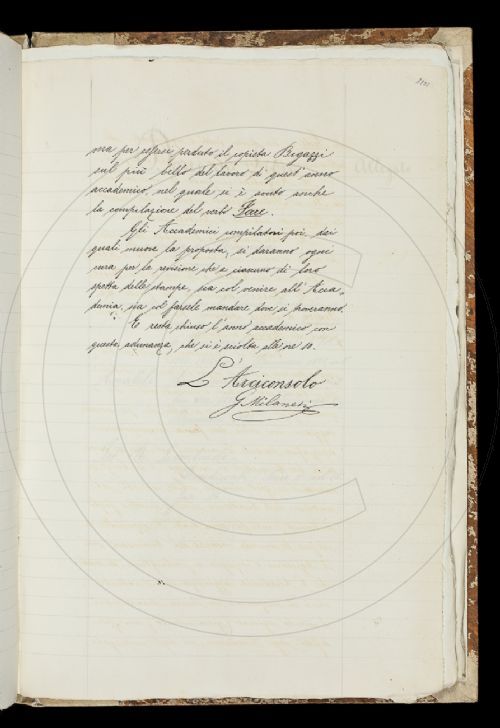 ma per essersi perduto il copista Bigazzi
sul più bello del lavoro di quest'anno
accademico, nel quale si è avuto anche
la compilazione del verbo Fare.
Gli Accademici compilatori poi, dai
quali muove la proposta, si daranno ogni
cura per la revisione che a ciascuno di loro
spetta delle stampe, sia col venire all'Acca-
demia, sia col farsele mandare dove si troveranno.
E resta chiuso l'anno accademico con
questa adunanza, che si è sciolta alle ore 10.
L'Arciconsolo
G Milanesi